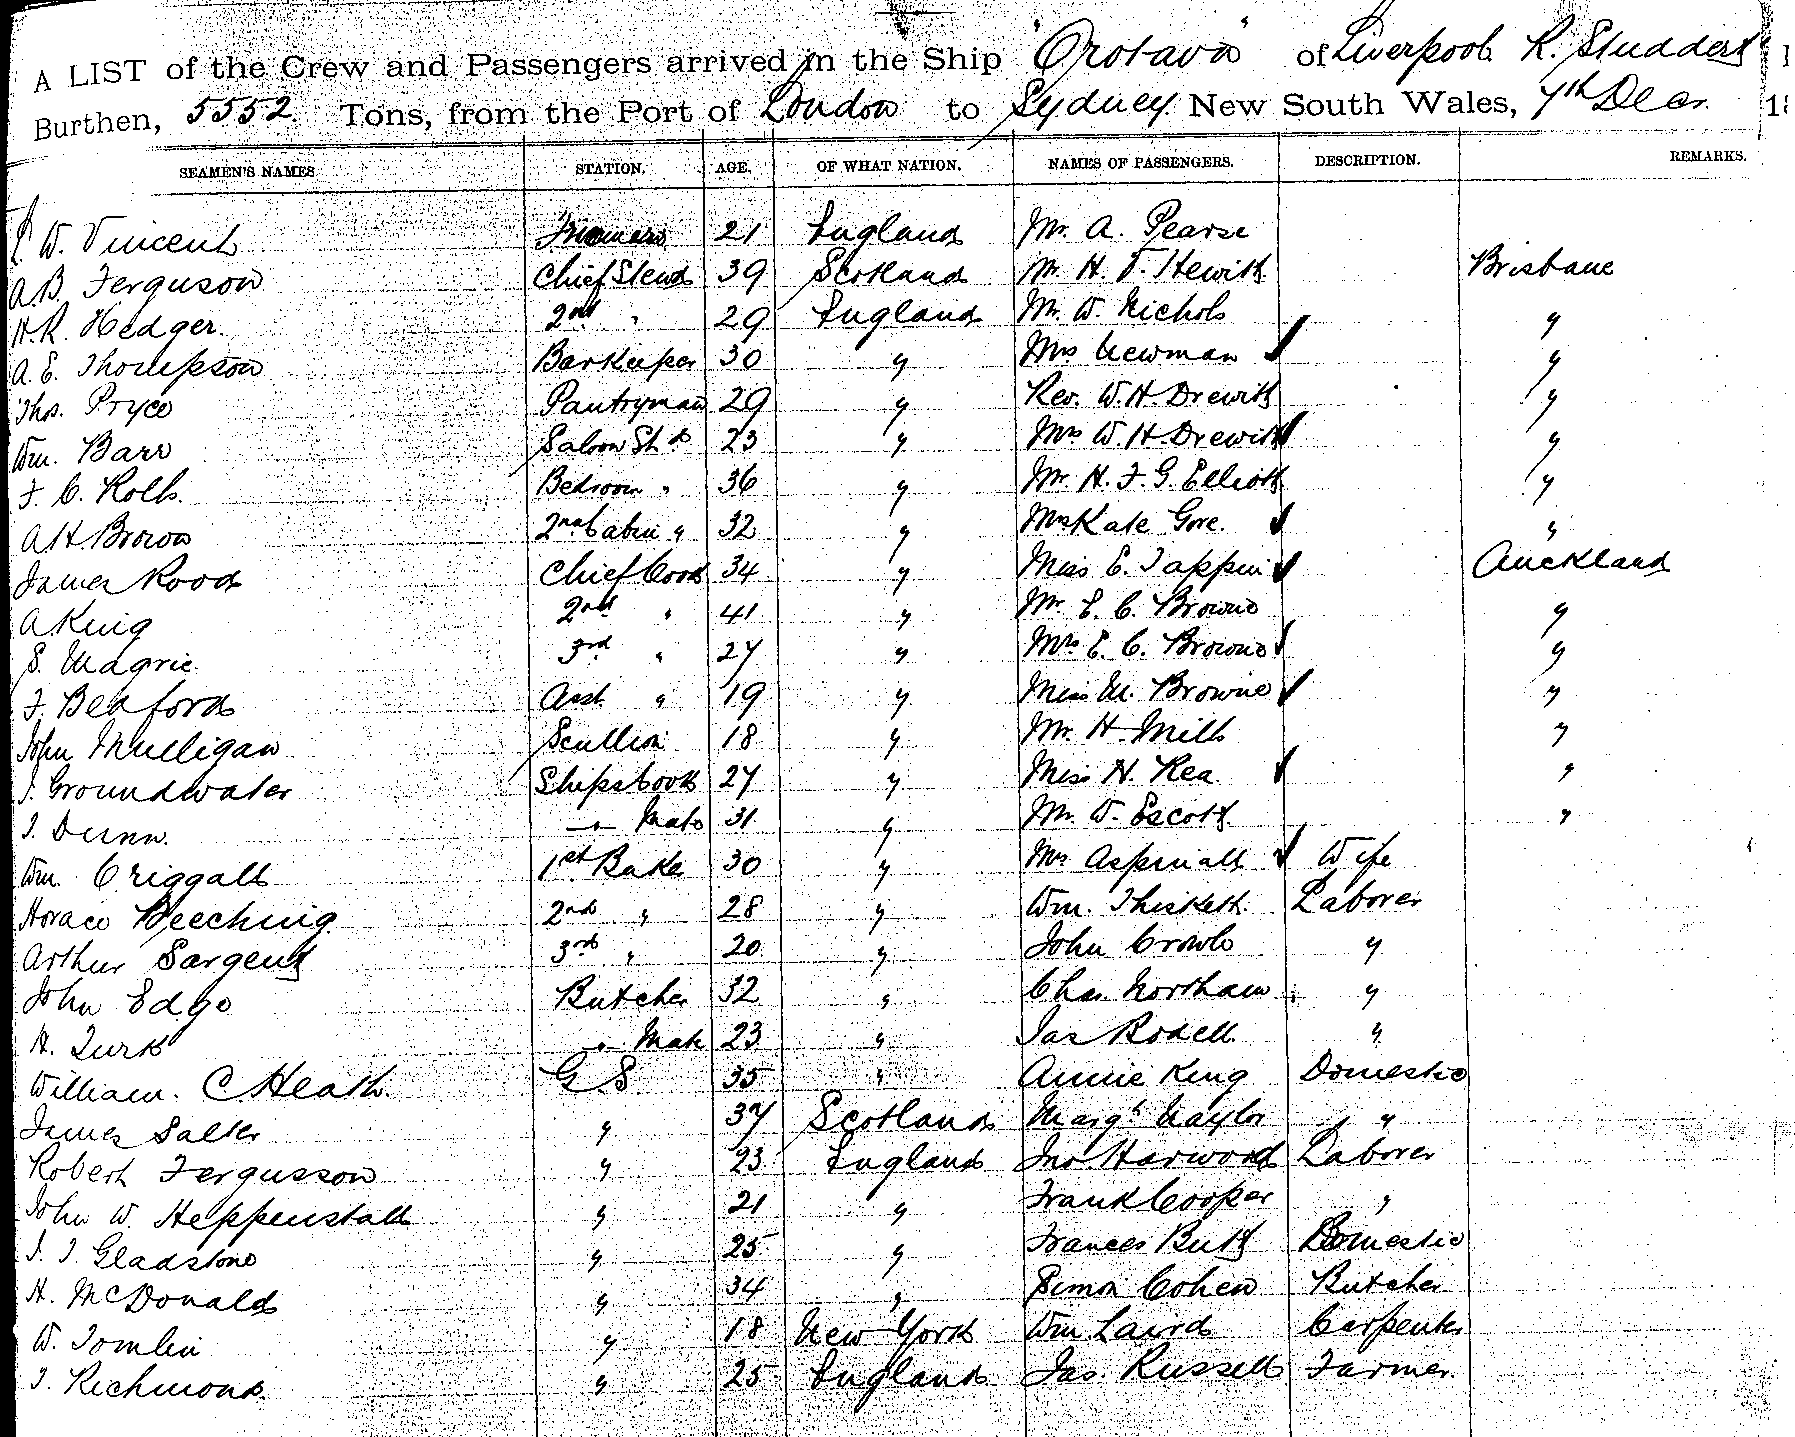 A LIST of the Crew and Passengers arrived in the Ship "Orotava" of Liverpool R. Studdert
Burthen, 5552 Tons, from the Port of London to Sydney New South Wales, 7th Decr. 18
SEAMEN'S NAMES STATION. AGE. OF WHAT NATION. NAMES OF PASSENGERS. DESCRIPTION. REMARKS.
W. Vincent 21 England Mr. A. Pearse
A B Ferguson Chief Stewd 39 Scotland Mr. H. T. Hewitt Brisbane
H. R. Hedger. 2nd " 29 England Mr. W. Nichols "
A. E. Thompson Barkeeper 30 " Mrs Newman "
Thos. Pryce Pantryman 29 " Rev. W. H. Drewitt "
Wm. Barr Saloon Std 23 " Mrs W. H. Drewitt "
F. C. Rolls. Bedroom " 36 " Mr. H. F. G. Elliott "
A H Brown 2nd Cabin " 32 " Mrs Kate Gore. "
James Rood Chief Cook 34 " Miss E. Tappin Auckland
A King 2nd " 41 " Mr E. C. Browne "
S. 3rd " 27 " Mrs E. C. Browne "
F. Bedford Asst. " 19 " Miss M. Browne "
John Mulligan Scullion 18 " Mr. H. Mills "
J. Groundwater Ships Cook 27 " Miss H. Rea "
J. Dunn. " Mate 31 " Mr. W. Escott "
Wm. Criggall 1st Baker 30 " Mrs Aspinall Wife
Horace Beeching 2nd " 28 " Wm. Laborer
Arthur Sargent 3rd " 20 " John Crowle "
John Edge Butcher 32 " Chas. Northam "
H. Turk " Mate 23 " Jas Rodell "
William. C Heath. G S 35 " Annie King Domestic
James Salter " 37 Scotland Margt Naylor "
Robert Fergusson " 23 England Jno Harwood Laborer
John W. Heppenstall " 21 " Frank Cooper "
J. J. Gladstone " 25 " Frances Butt Domestic
H. McDonald " 34 " Simon Cohen Butcher
W. Tomlin " 18 New York Wm Laird Carpenter
J. Richmond " 25 England Jas. Russell Farmer